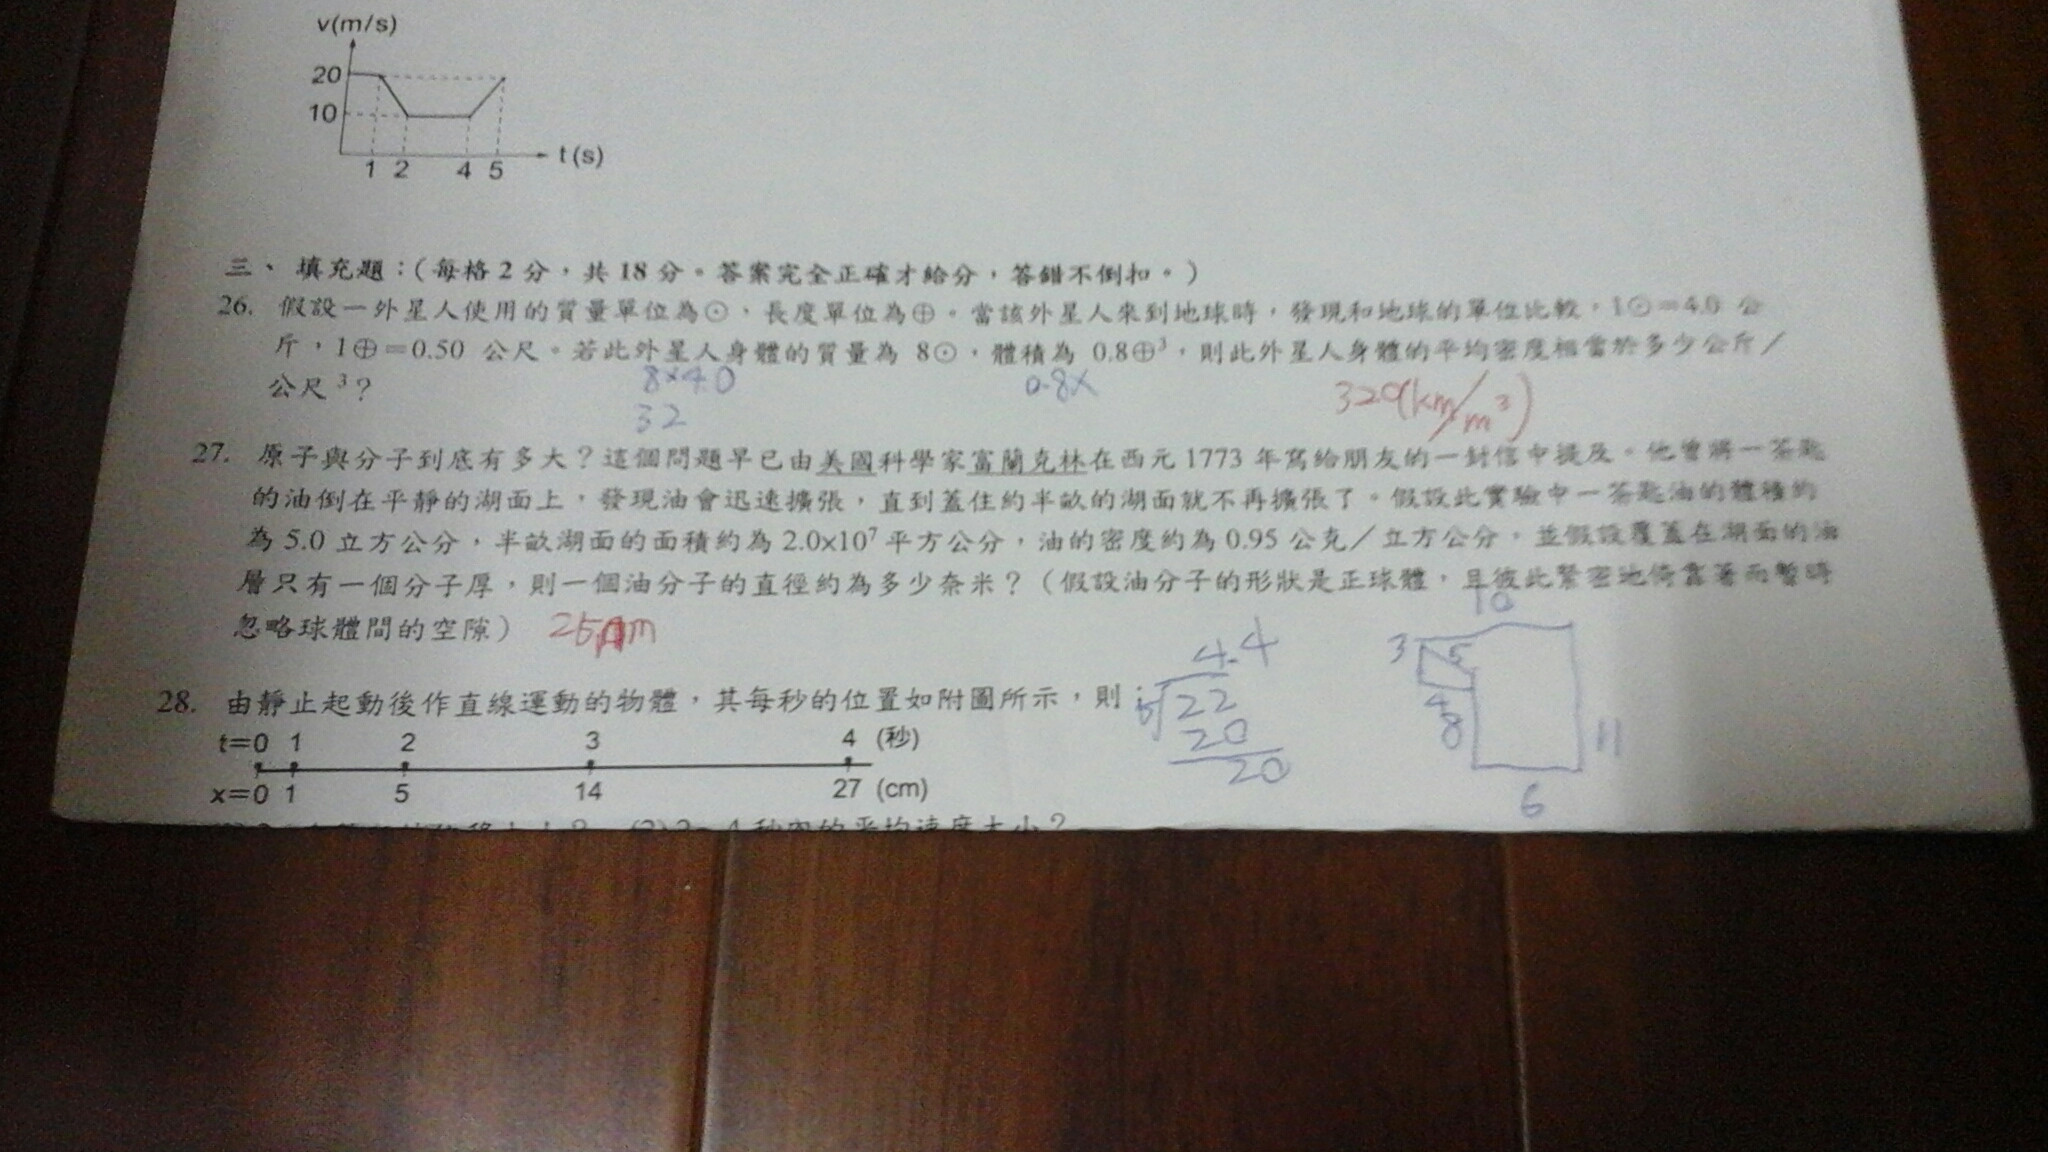 v(m/s)
20
10
1 2 4 5 t(s)
三、 填充題：(每格2分，共18分。答案完全正確才給分，答錯不倒扣。)
26. 假設一外星人使用的質量單位為⊙、長度單位為⊕。當該外星人來到地球時，發現和地球的單位比較，1⊙=4.0 公
斤，1⊕=0.50 公尺。若此外星人身體的質量為 8⊙，體積為 0.8⊕³，則此外星人身體的平均密度相當於多少公斤／
公尺³？
8×4.0 0.8× 320(km/m³)
32
27. 原子與分子到底有多大？這個問題早已由美國科學家富蘭克林在西元1773年寫給朋友的一封信中提及。他曾將一茶匙
的油倒在平靜的湖面上，發現油會迅速擴張，直到蓋住約半畝的湖面就不再擴張了。假設此實驗中一茶匙油的體積約
為5.0立方公分，半畝湖面的面積約為2.0×10⁷平方公分，油的密度約為0.95公克／立方公分，並假設覆蓋在湖面的油
層只有一個分子厚，則一個油分子的直徑約為多少奈米？（假設油分子的形狀是正球體，且彼此緊密地倚靠著而暫時
忽略球體間的空隙）
10
3 5
4.4
22
20
20
4
8
11
6
28. 由靜止起動後作直線運動的物體，其每秒的位置如附圖所示，則：
t=0 1 2 3 4 (秒)
x=0 1 5 14 27 (cm)
秒內的平均速度大小？